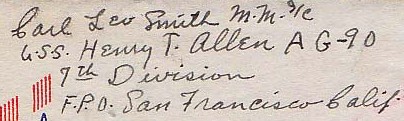 Carl Leo Smith M.M. 3/c
U.S.S. Henry T. Allen AG-90
7th Division
F.P.O. San Francisco Calif.